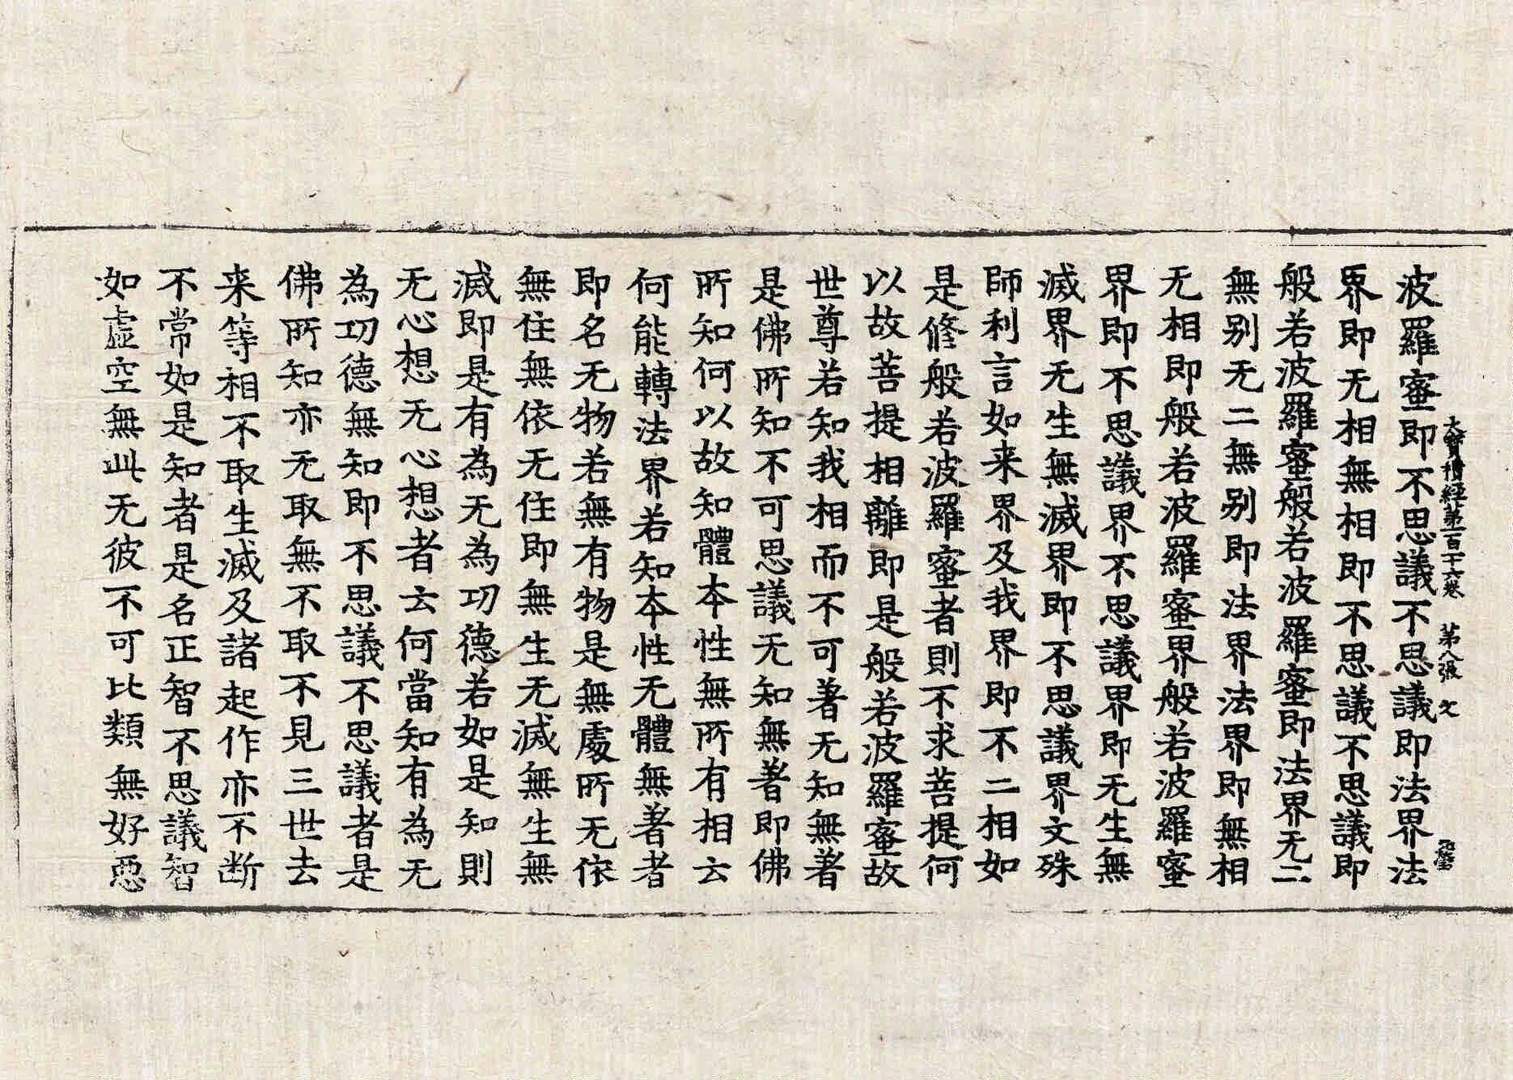 大寶積經第一百十六卷 第八張 文
波羅蜜即不思議不思議即法界法
界即无相無相即不思議不思議即
般若波羅蜜般若波羅蜜即法界无二
無别无二無别即法界法界即無相
无相即般若波羅蜜界般若波羅蜜
界即不思議界不思議界即无生無
滅界无生無滅界即不思議界文殊
師利言如来界及我界即不二相如
是修般若波羅蜜者則不求菩提何
以故菩提相離即是般若波羅蜜故
世尊若知我相而不可著无知無著
是佛所知不可思議无知無著即佛
所知何以故知體本性無所有相云
何能轉法界若知本性无體無著者
即名无物若無有物是無處所无依
無住無依无住即無生无滅無生無
滅即是有為无為功德若如是知則
无心想无心想者云何當知有為无
為功德無知即不思議不思議者是
佛所知亦无取無不取不見三世去
来等相不取生滅及諸起作亦不断
不常如是知者是名正智不思議智
如虚空無此无彼不可比類無好惡